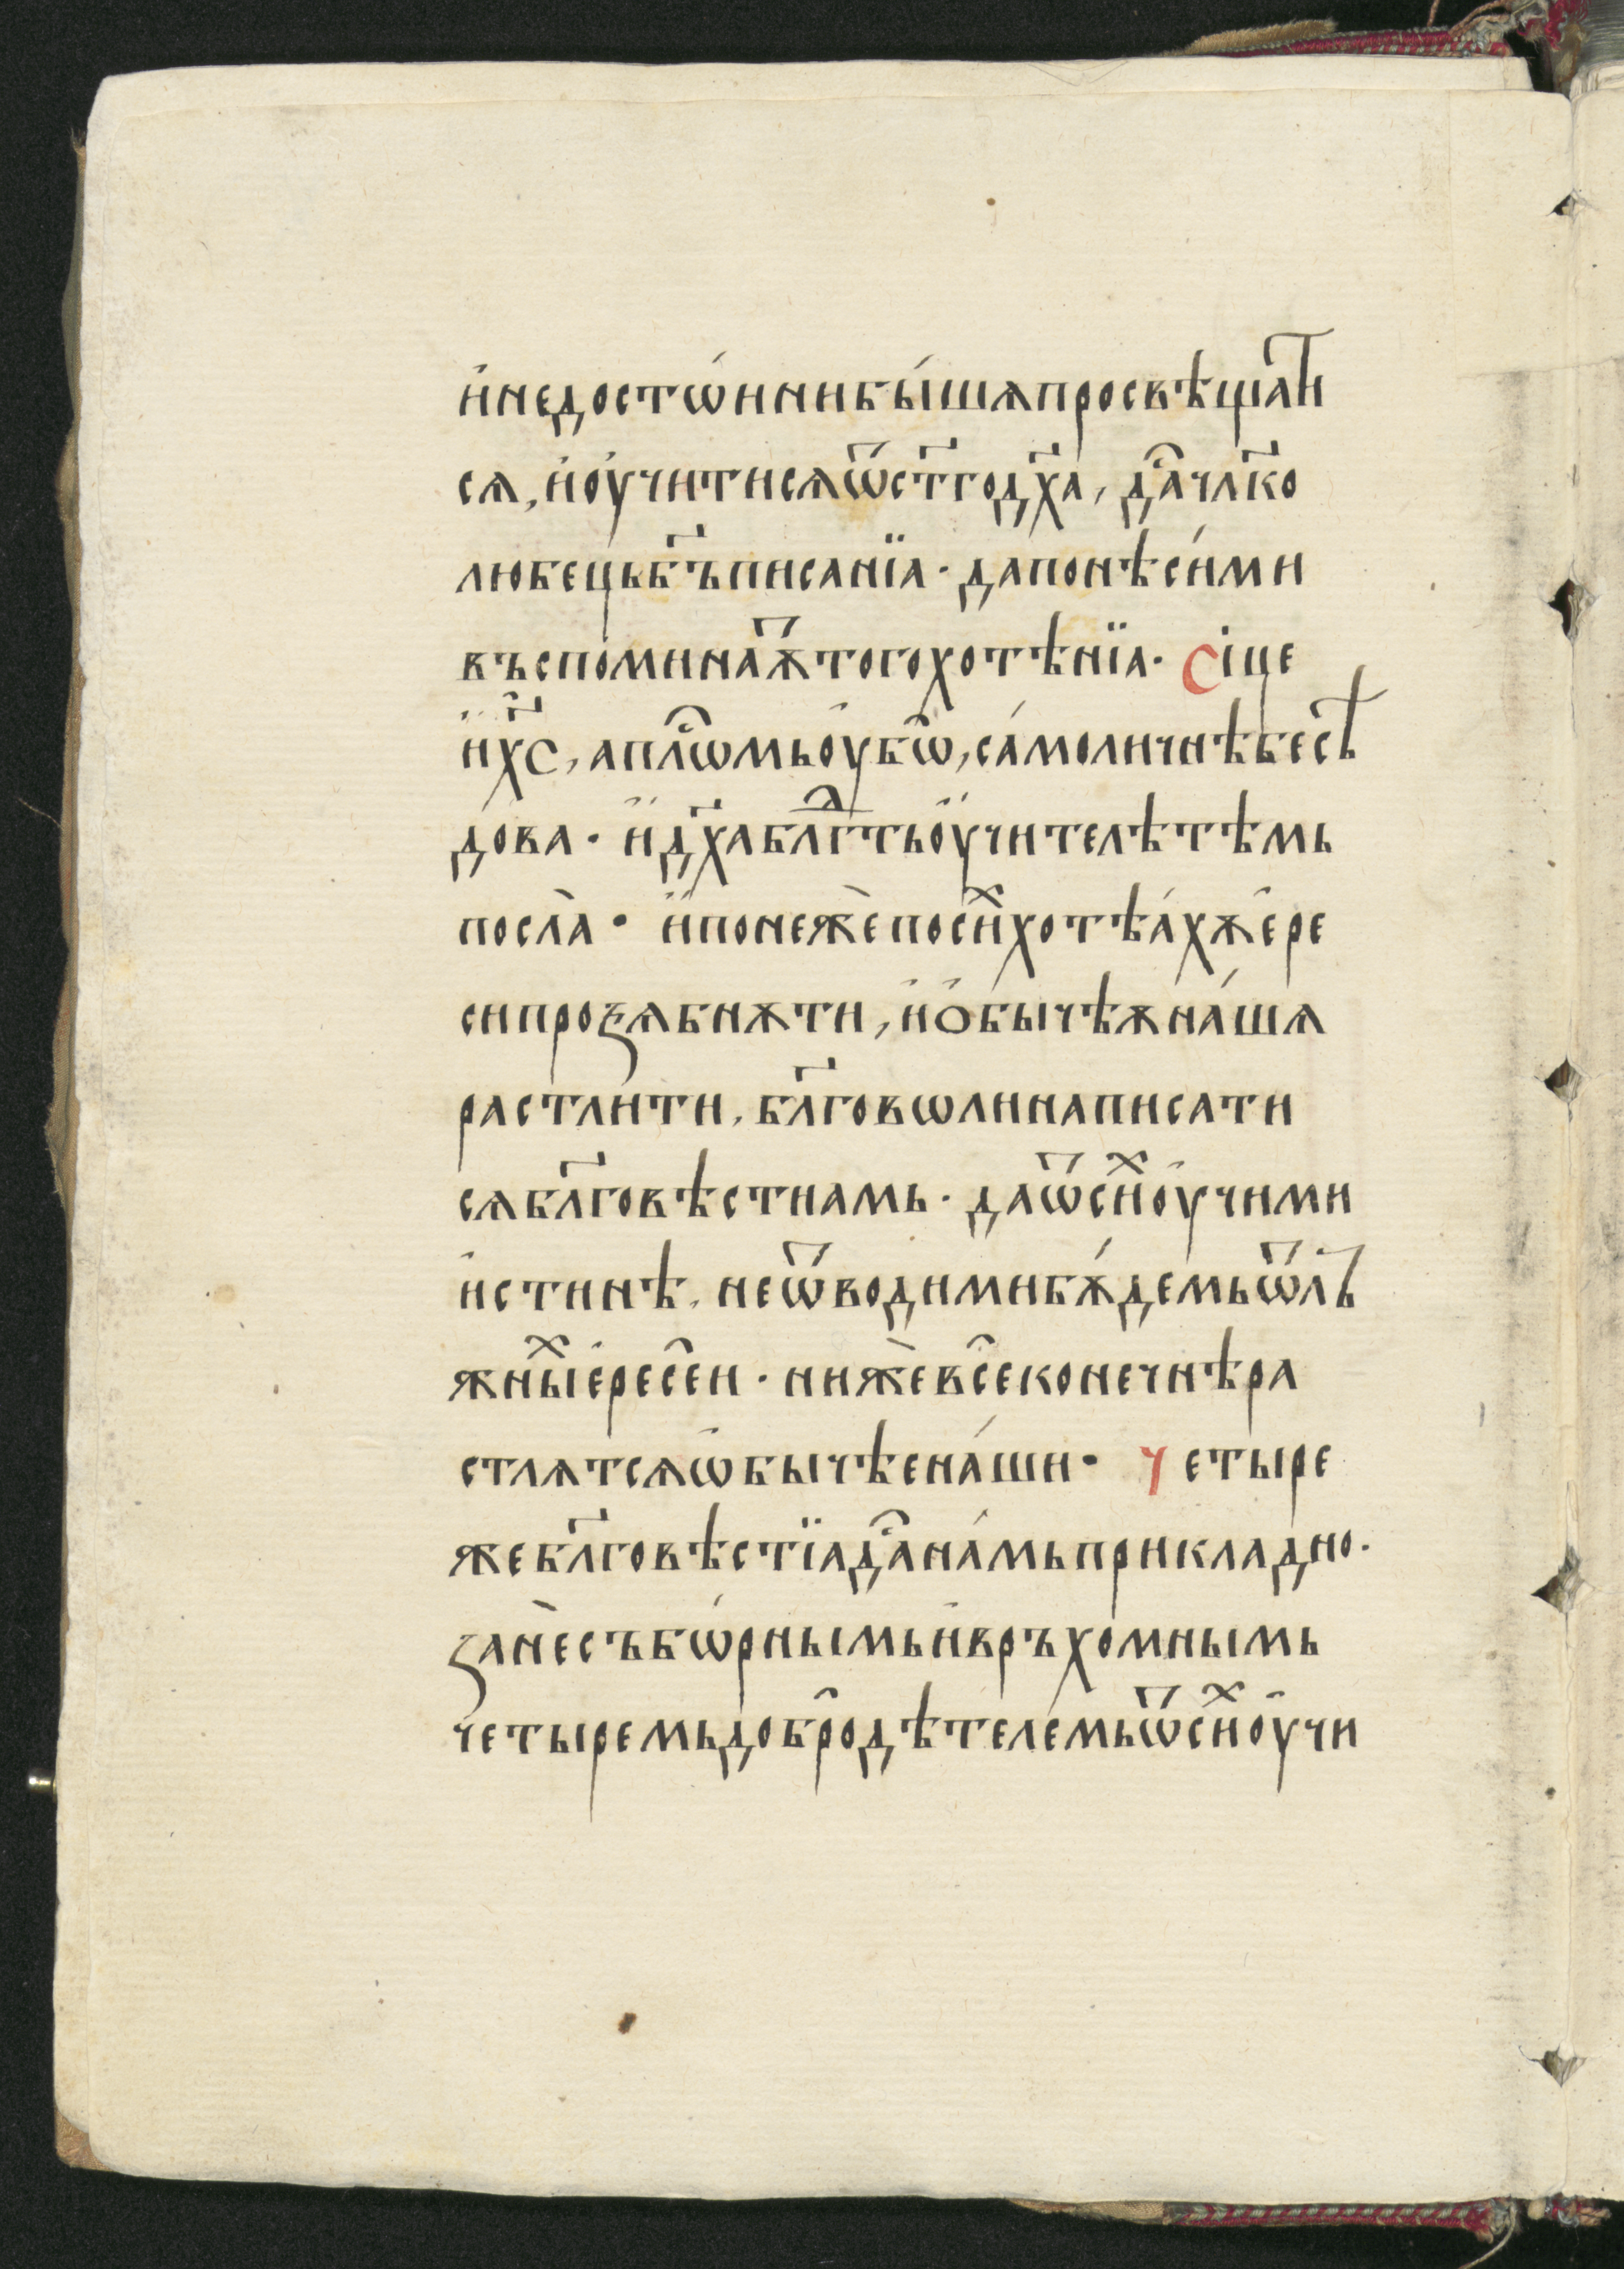 и҆недостѡ́инибы́шѧпросвѣщат҇и
сѧ, и҆оу҆чи́тисѧѿст҃годх҃а, да́стьчл҃ко
любець́б҃ъписанїа · дапонѣси́ми
въспоминаѫ҆́тогохотѣнїа · Сіце
и҆х҃с, апⷭ҇лѡмьоу҆бѡ, са́моличнѣбесѣ
дова · и҆дх҃аблⷣгтьоу҆чителѣтѣмь
посла̀ · и҆понежѐпосиⷯхотѣа́хѫе҆ре
сипроѕѧбнѫти, и҆ѻ҆бычѣѫна́шѧ
растли́ти, бл҃говѡлинаписати
сѧбл҃говѣстиамь · даѿсиⷯоу҆чими
и҆стинѣ, неѿводимибѫ́демьѿлъ
жныⷯе҆ресеи · нижѐвсеконечнѣра
стлѧтсѧѡ҆бычѣена́ши · Четыре
жебл҃говѣстїадⷭ҇ана́мьприкладно ·
ꙁанѐсъбѡ́рнымьи҆връхо́мнымь
четыремьдобродѣтелемьѿсиⷯоу҆чи